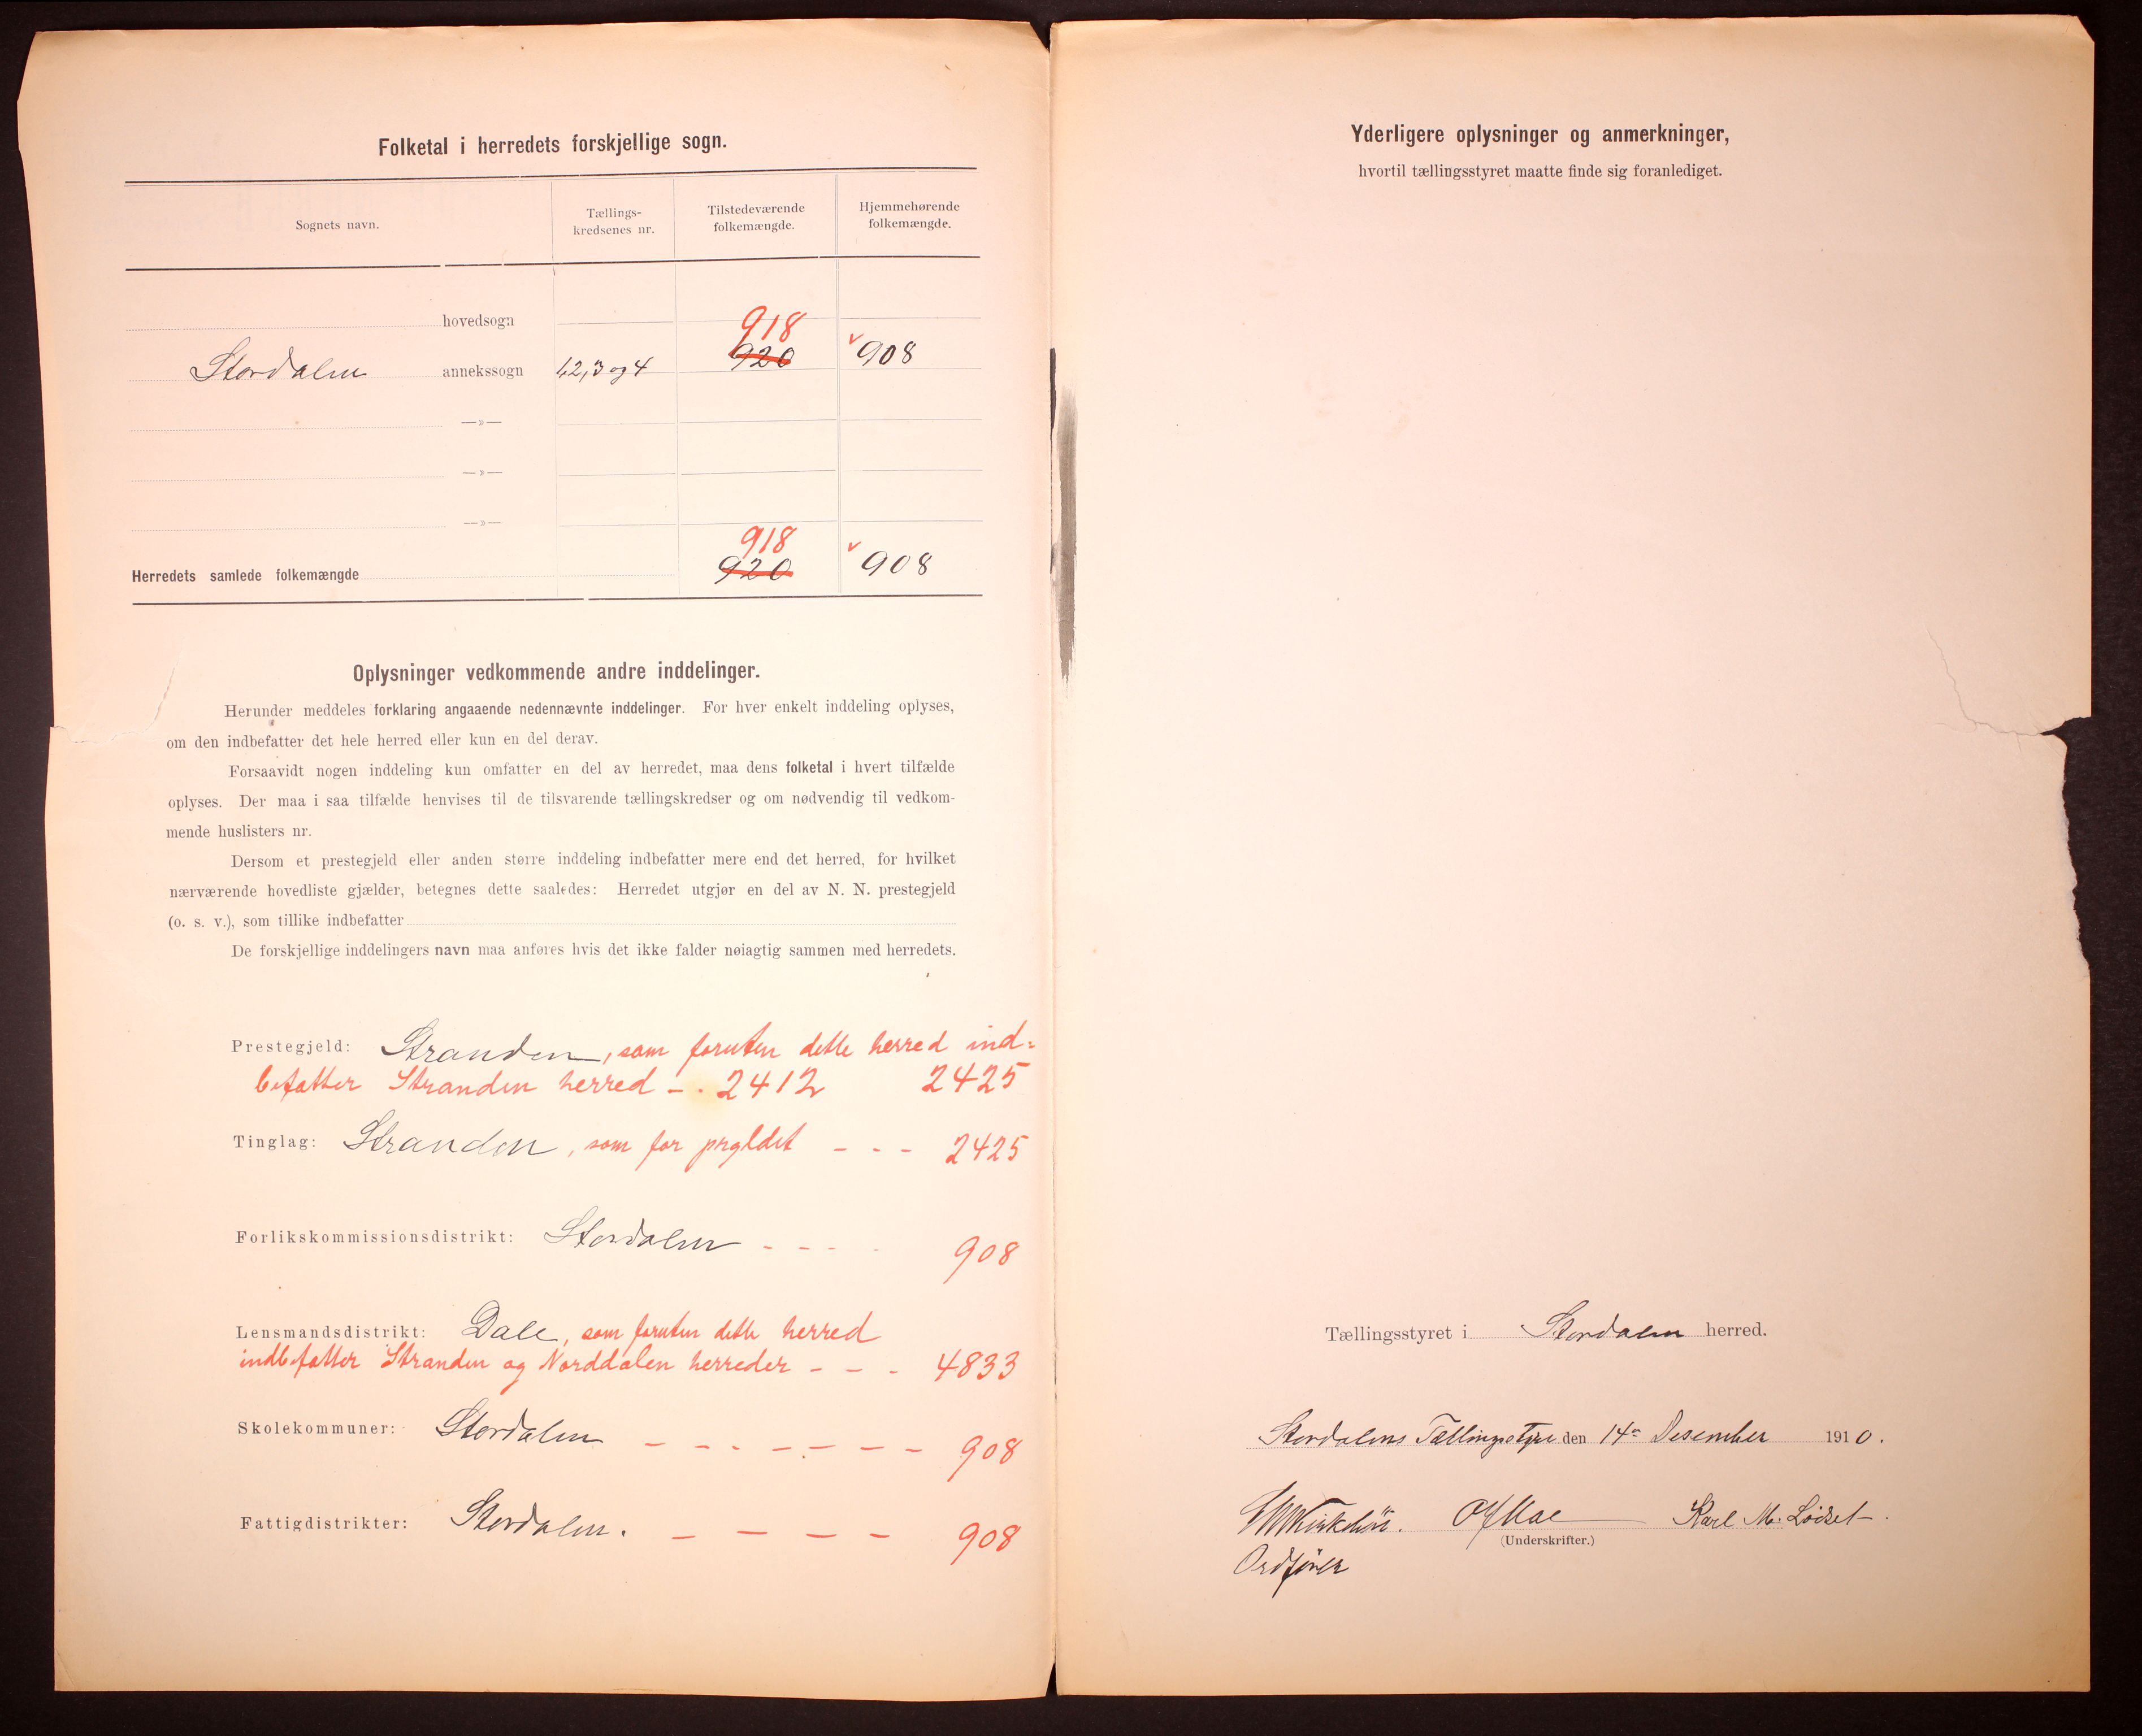 Folketal i herredets forskjellige sogn.
Sognets navn.
Tællings-
kredsenes nr.
Tilstedeværende
folkemængde.
Hjemmehørende
folkemængde.
hovedsogn
918
Stordalen annekssogn 1,2,3 og 4 920 908
—»—
—»—
—»—
918
Herredets samlede folkemængde 920 908
Oplysninger vedkommende andre inddelinger.
Herunder meddeles forklaring angaaende nedennævnte inddelinger. For hver enkelt inddeling oplyses,
om den indbefatter det hele herred eller kun en del derav.
Forsaavidt nogen inddeling kun omfatter en del av herredet, maa dens folketal i hvert tilfælde
oplyses. Der maa i saa tilfælde henvises til de tilsvarende tællingskredser og om nødvendig til vedkom-
mende huslisters nr.
Dersom et prestegjeld eller anden større inddeling indbefatter mere end det herred, for hvilket
nærværende hovedliste gjælder, betegnes dette saaledes: Herredet utgjør en del av N. N. prestegjeld
(o. s. v.), som tillike indbefatter
De forskjellige inddelingers navn maa anføres hvis det ikke falder nøiagtig sammen med herredets.
Prestegjeld: Stranden, som foruten dette herred ind-
befatter Stranden herred - . 2412 2425
Tinglag: Stranden, som for prgldet - - - 2425
Forlikskommissionsdistrikt: Stordalen - - - - 908
Lensmandsdistrikt: Dale, som foruten dette herred
indbefatter Stranden og Norddalen herreder - - - 4833
Skolekommuner: Stordalen - - - - - - - 908
Fattigdistrikter: Stordalen. - - - - 908
Yderligere oplysninger og anmerkninger,
hvortil tællingsstyret maatte finde sig foranlediget.
Tællingsstyret i Stordalen herred.
Stordalens Tællingsstyre den 14de Desember 1910.
Karl M. Lødset.
(Underskrifter.)
Ordfører